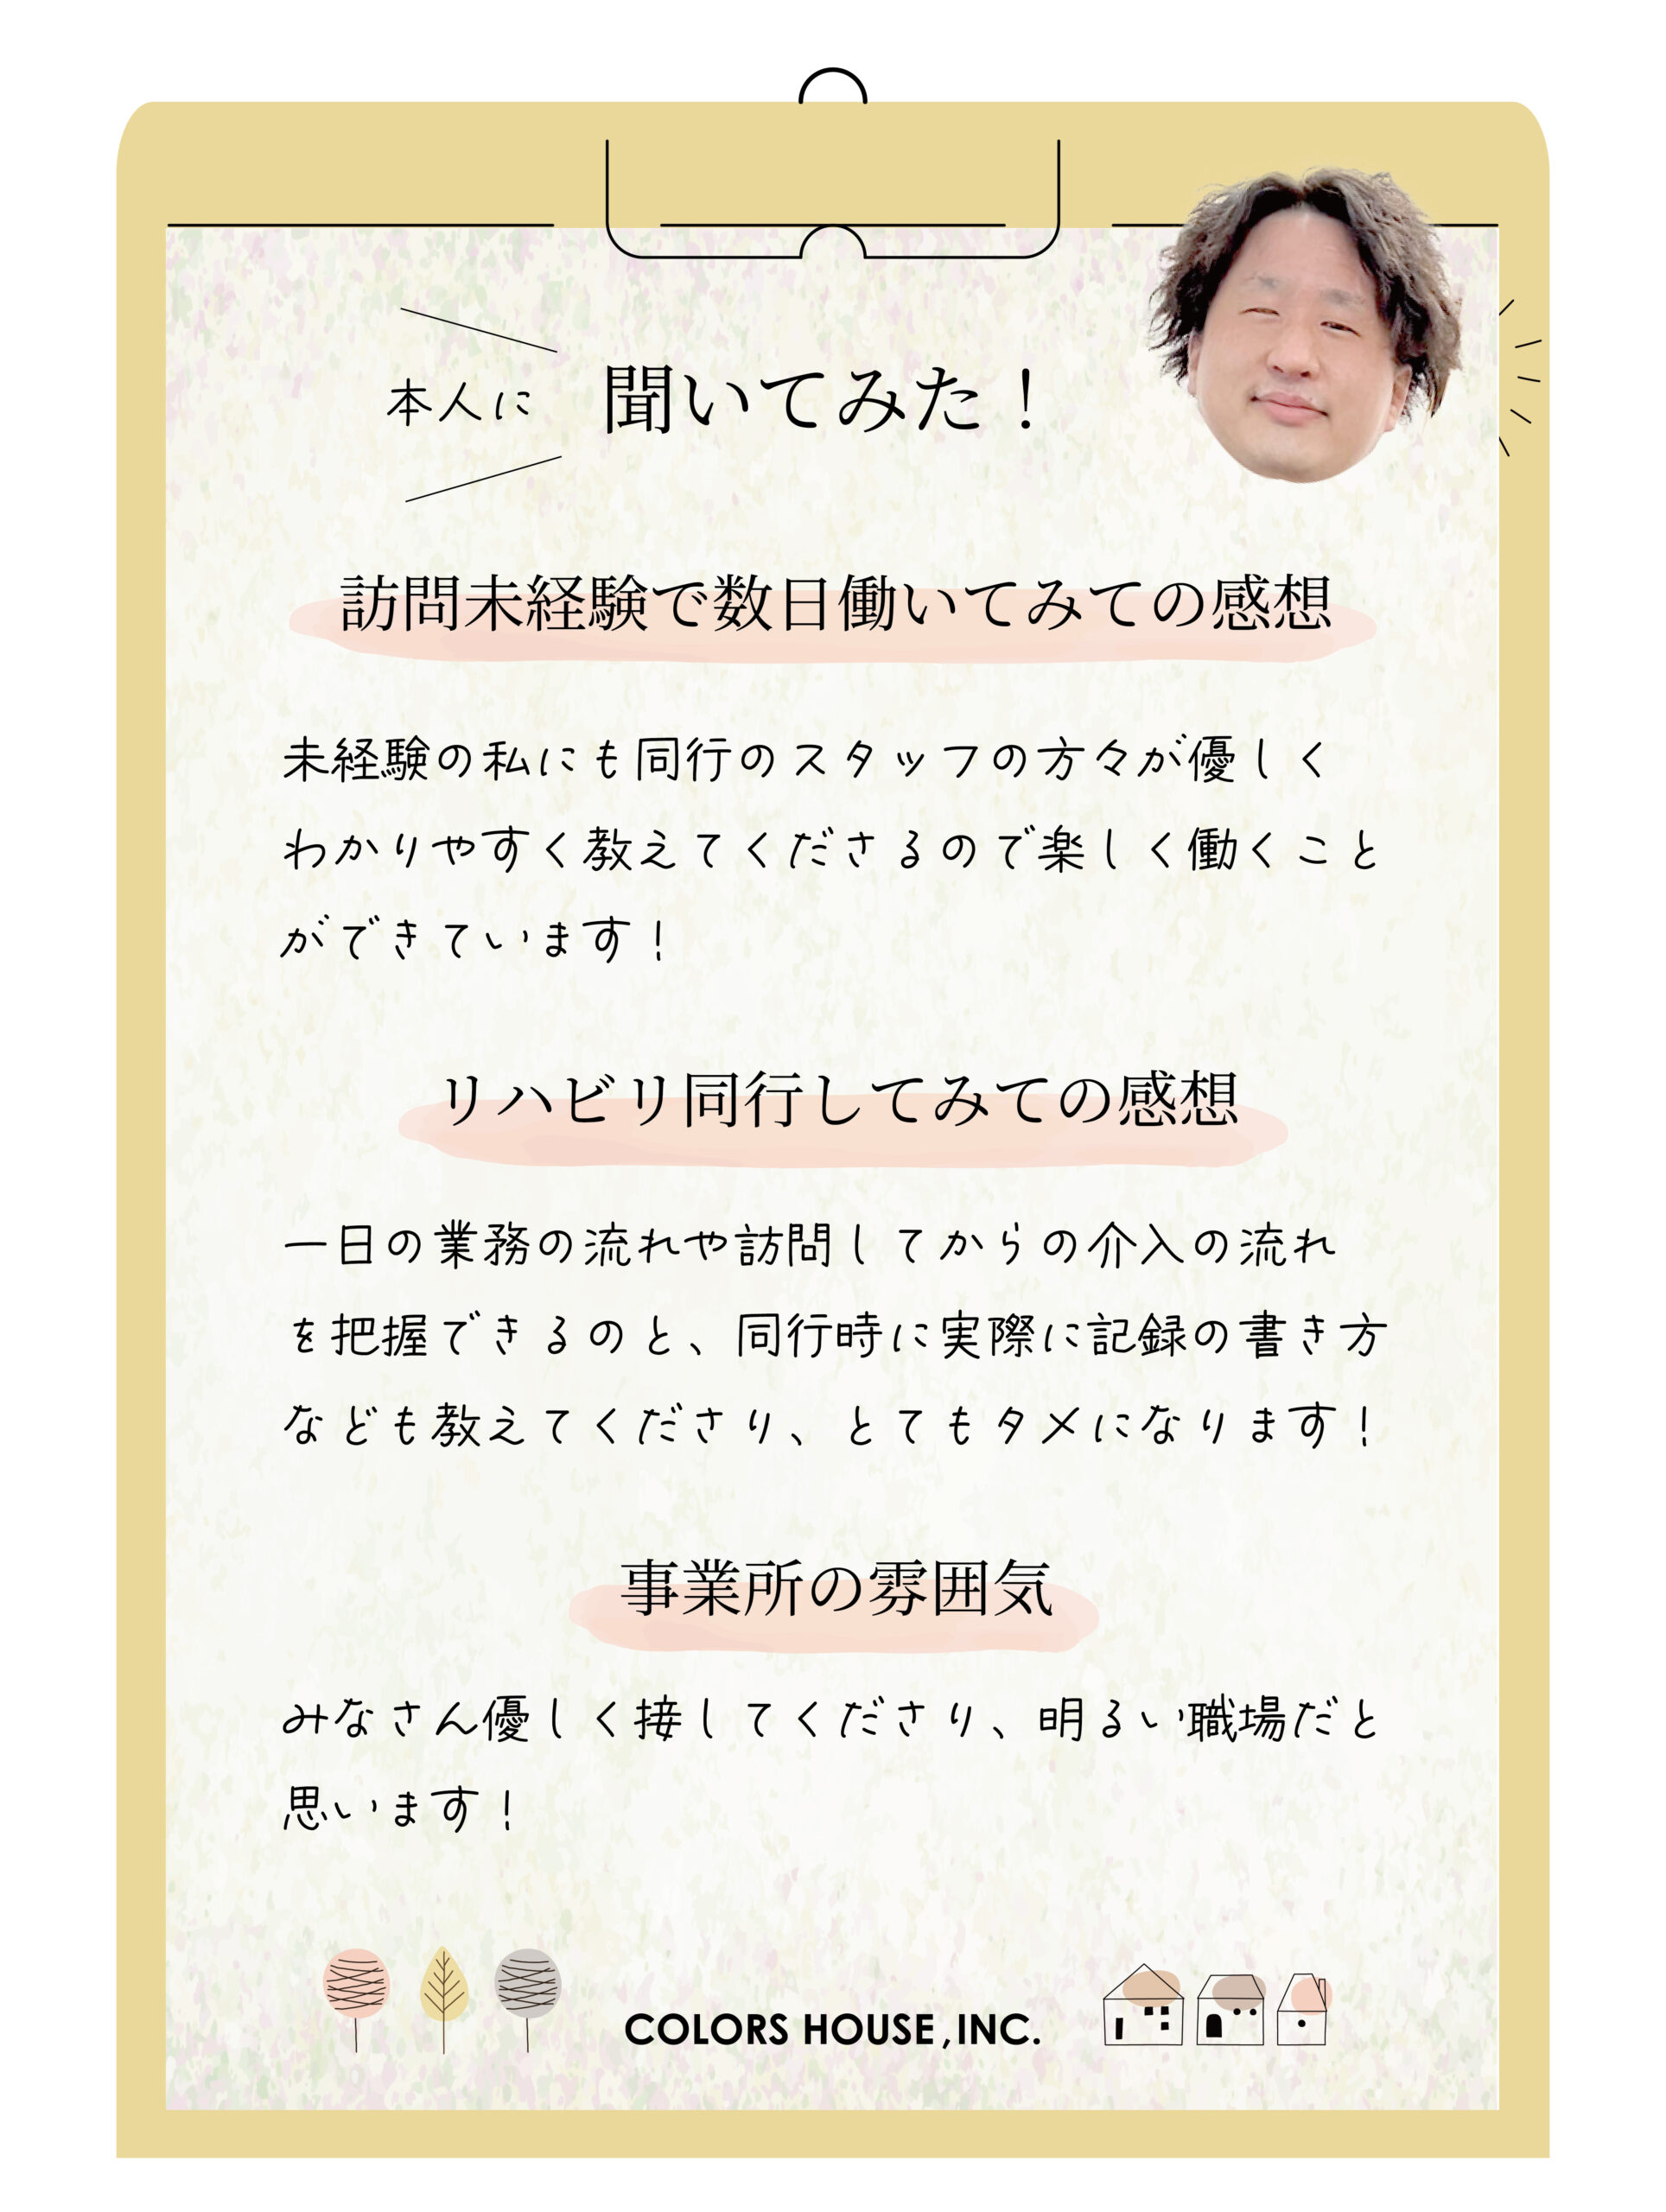 本人に 聞いてみた！
訪問未経験で数日働いてみての感想
未経験の私にも同行のスタッフの方々が優しく
わかりやすく教えてくださるので楽しく働くこと
ができています！
リハビリ同行してみての感想
一日の業務の流れや訪問してからの介入の流れ
を把握できるのと、同行時に実際に記録の書き方
なども教えてくださり、とてもタメになります！
事業所の雰囲気
みなさん優しく接してくださり、明るい職場だと
思います！
COLORS HOUSE,INC.